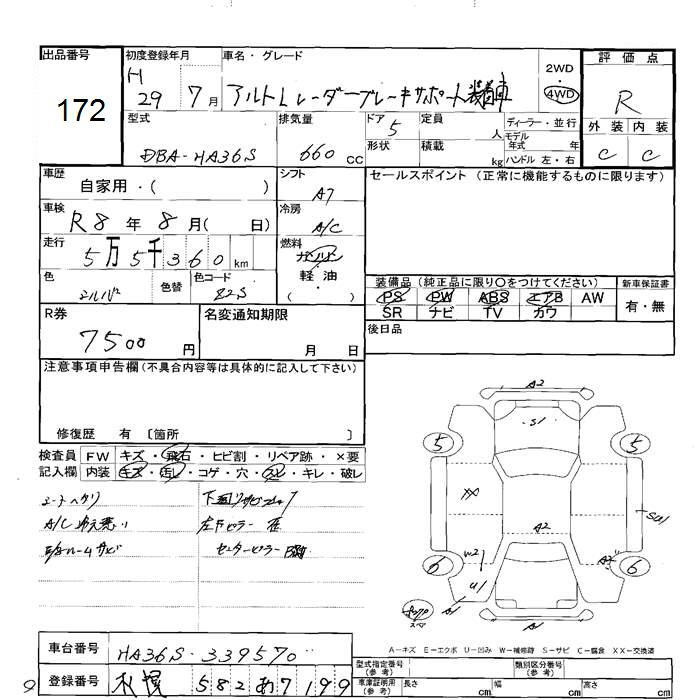 出品番号
172
初度登録年月
H 29 7月
車名・グレード
アルト L レーダーブレーキサポート装着車
2WD
4WD
評価点
R
外装 内装
C C
型式
DBA-HA36S
排気量
660 cc
ドア
5
形状
定員
人
積載
kg
ディーラー・並行
モデル
年式 年
ハンドル 左・右
車歴
自家用・( )
シフト
A7
セールスポイント(正常に機能するものに限ります)
車検
R8年8月( 日)
冷房
A/C
走行
5万5千360km
燃料
ガソリン
軽油
( ・ )
色
シルバー
色替
色コード
Z2S
装備品(純正品に限り〇をつけてください)
PS PW ABS エアB AW
SR ナビ TV カワ
新車保証書
有・無
R券
7500円
名変通知期限
月 日
後日品
注意事項申告欄(不具合内容等は具体的に記入して下さい)
修復歴 有 〔箇所 〕
検査員 FW キズ・飛石・ヒビ割・リペア跡・×要
記入欄 内装 キズ・汚レ・コゲ・穴・スレ・キレ・破レ
A/C冷え悪い
A2
S1
5
5
XX
SU1
A2
W2
6
U1
6
A1
A1
スペア
A-キズ E-エクボ U-凹み W-補修跡 S-サビ C-腐食 XX-交換済
車台番号
HA36S-339570
登録番号
札幌 582 あ 7199
型式指定番号
(参考)
類別区分番号
(参考)
車庫証明用
(参考)
長さ cm
幅 cm
高さ cm